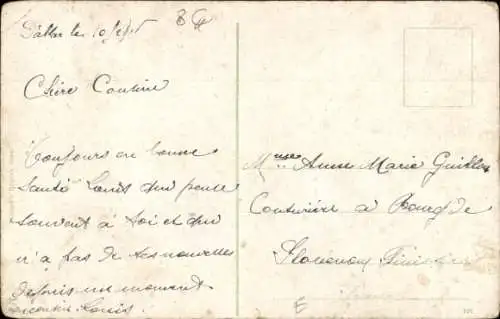 le 10/5/15
Chère Cousine
Toujours en bonne
santé Louis qui pense
souvent à toi et qui
n'a pas de tes nouvelles
depuis un moment
Louis.
Mme Anne Marie Guillou
Couturière a Bourg de
Plouenou Finistère
E